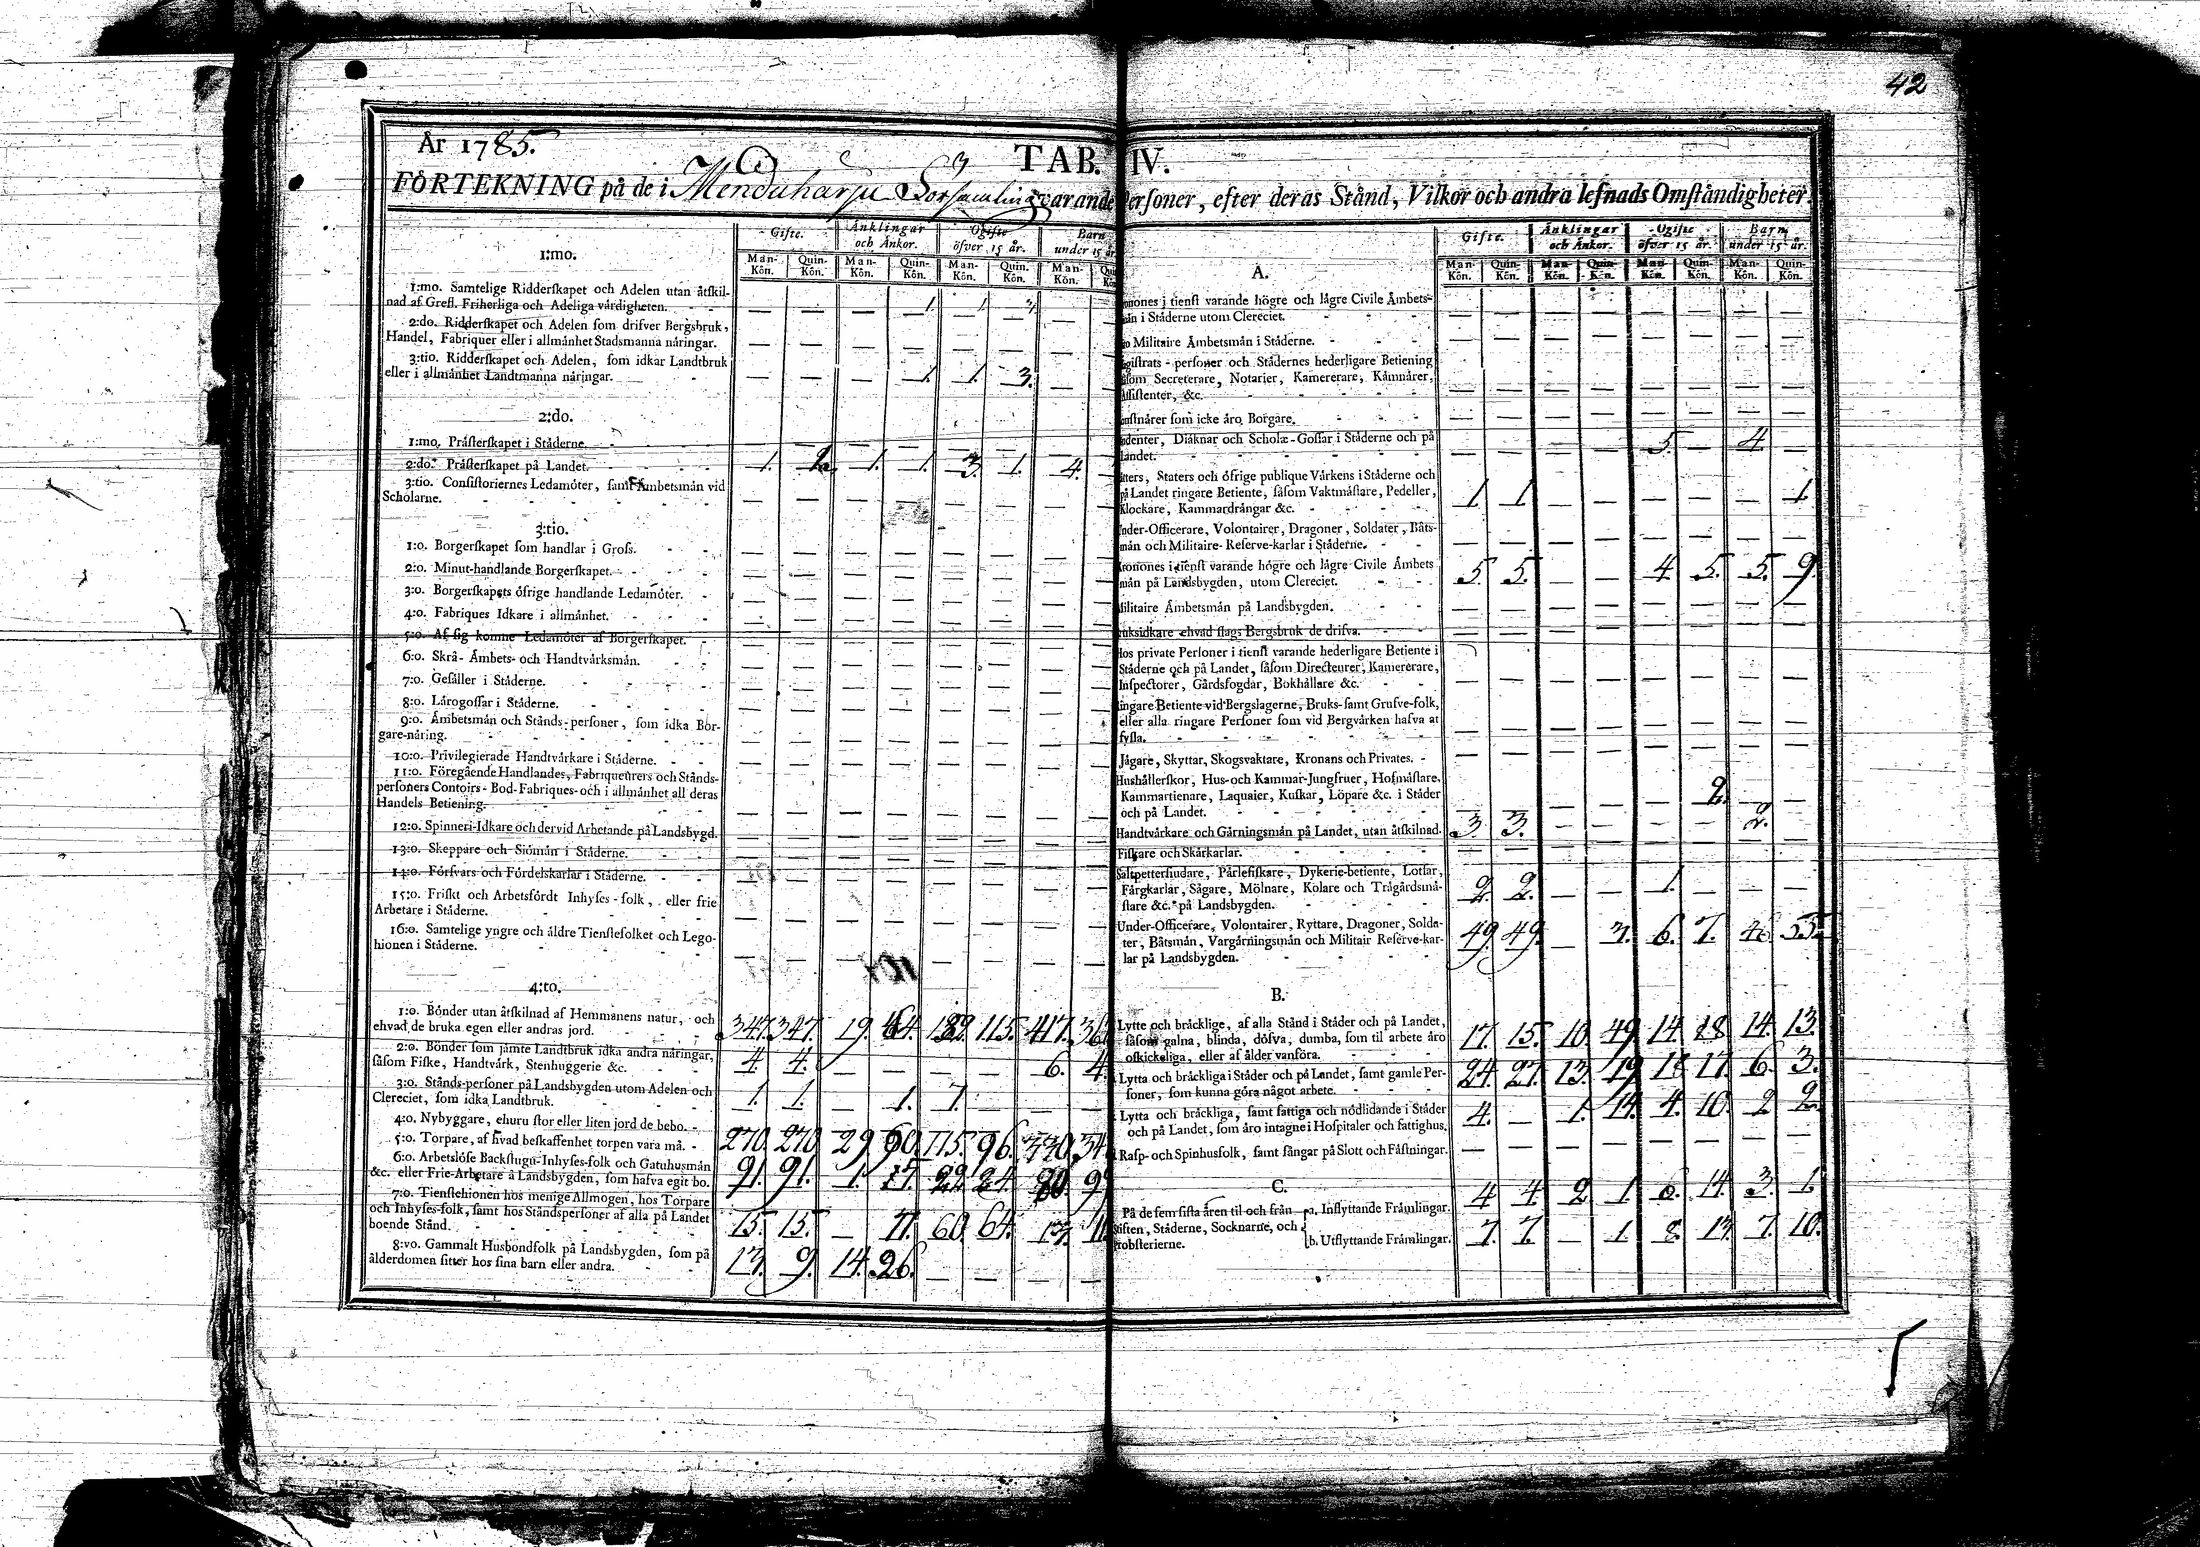 42
År 1785.
TAB. IV.
FÖRTEKNING på de i Menduharju Församling varande Personer, efter deras Stånd, Vilkor och andra lefnads Omständigheter.
Gifte. Änklingar och Änkor. Ogifte öfver 15 år. Barn under 15 år.
Man-Kön. Quin-Kön. Man-Kön. Quin-Kön. Man-Kön. Quin-Kön. Man-Kön.
1:mo.
1:mo. Samtelige Ridderskapet och Adelen utan åtskil-
nad af Grefl. Friherliga och Adeliga värdigheten. — — — 1. 1. 3. —
2:do. Ridderskapet och Adelen som drifver Bergsbruk,
Handel, Fabriquer eller i allmänhet Stadsmanna näringar. — — — — — — —
3:tio. Ridderskapet och Adelen, som idkar Landtbruk
eller i allmänhet Landtmanna näringar. — — — 1. 1. 3. —
2:do.
1:mo. Prästerskapet i Städerne. — — — — — — —
2:do. Prästerskapet på Landet. 1. 2. 1. 1. 3. 1. 4.
3:tio. Consistoriernes Ledamöter, samt Ämbetsmän vid
Scholarne. — — — — — — —
3:tio.
1:o. Borgerskapet som handlar i Gross. — — — — — — —
2:o. Minut-handlande Borgerskapet. — — — — — — —
3:o. Borgerskapets öfrige handlande Ledamöter. — — — — — — —
4:o. Fabriques Idkare i allmänhet. — — — — — — —
5:o. Af sig komne Ledamöter af Borgerskapet. — — — — — — —
6:o. Skrå- Ämbets- och Handtvärksmän. — — — — — — —
7:o. Gesäller i Städerne. — — — — — — —
8:o. Lärogossar i Städerne. — — — — — — —
9:o. Ämbetsmän och Stånds-personer, som idka Bor-
gare-näring. — — — — — — —
10:o. Privilegierade Handtvärkare i Städerne. — — — — — — —
11:o. Föregående Handlandes, Fabriqueurers och Stånds-
personers Contoirs- Bod- Fabriques- och i allmänhet all deras
Handels Betiening. — — — — — — —
12:o. Spinneri-Idkare och dervid Arbetande på Landsbygd. — — — — — — —
13:o. Skeppare och Siömän i Städerne. — — — — — — —
14:o. Försvars och Fördelskarlar i Städerne. — — — — — — —
15:o. Friskt och Arbetsfördt Inhyses-folk, eller frie
Arbetare i Städerne. — — — — — — —
16:o. Samtelige yngre och äldre Tienstefolket och Lego-
hionen i Städerne. — — — — — — —
4:to.
1:o. Bönder utan åtskilnad af Hemmanens natur, och
ehvad de bruka egen eller andras jord. 347. 347. 19. 115. 417.
2:o. Bönder som jämte Landtbruk idka andra näringar,
såsom Fiske, Handtvärk, Stenhuggerie &c. 4. 4. — — — — 6. 4.
3:o. Stånds-personer på Landsbygden utom Adelen och
Clereciet, som idka Landtbruk. 1. 1. — 1. 7. — —
4:o. Nybyggare, ehuru stor eller liten jord de bebo. — — — — — — —
5:o. Torpare, af hvad beskaffenhet torpen vara må. 270. 270. 29. 90. 115. 96. 330.
6:o. Arbetslöse Backstugu-Inhyses-folk och Gatuhusmän
&c. eller Frie-Arbetare å Landsbygden, som hafva egit bo. 91. 91. 1. 17. 22. 24. 80.
7:o. Tienstehionen hos menige Allmogen, hos Torpare
och Inhyses-folk, samt hos Ståndspersoner af alla på Landet
boende Stånd. 15. 15. — 11. 60. 64. 13.
8:vo. Gammalt Husbondfolk på Landsbygden, som på
ålderdomen sitter hos sina barn eller andra. 13. 9. 14. 26. — — —
Gifte. Änklingar och Änkor. Ogifte öfver 15 år. Barn under 15 år.
Man-Kön. Quin-Kön. Man-Kön. Quin-Kön. Man-Kön. Quin-Kön. Man-Kön. Quin-Kön.
A.
i tienst varande högre och lägre Civile Ämbets-
män i Städerne utom Clereciet. — — — — — — — —
Militaire Ämbetsmän i Städerne. — — — — — — — —
personer och Städernes hederligare Betiening
såsom Secreterare, Notarier, Kamererare, Kämnärer,
Assistenter, &c. — — — — — — — —
som icke äro Borgare. — — — — — — — —
Diäknar och Scholæ-Gossar i Städerne och på
Landet. 5. 4.
Staters och öfrige publique Värkens i Städerne och
på Landet ringare Betiente, såsom Vaktmästare, Pedeller,
Klockare, Kammardrängar &c. 1. 1. — — — — — 1.
Under-Officerare, Volontairer, Dragoner, Soldater, Båts-
män och Militaire-Reserve-karlar i Städerne. — — — — — — — —
Kronones i tienst varande högre och lägre Civile Ämbets
män på Landsbygden, utom Clereciet. 5. 5. — — 4. 5. 5. 9.
Militaire Ämbetsmän på Landsbygden. — — — — — — — —
Bruksidkare ehvad slags Bergsbruk de drifva. — — — — — — — —
Hos private Personer i tienst varande hederligare Betiente i
Städerne och på Landet, såsom Directeurer, Kamererare,
Inspectorer, Gårdsfogdar, Bokhållare &c. — — — — — — — —
Ringare Betiente vid Bergslagerne, Bruks- samt Grufve-folk,
eller alla ringare Personer som vid Bergvärken hafva at
sysla. — — — — — — — —
Jägare, Skyttar, Skogsvaktare, Kronans och Privates. — — — — — — — —
Hushållerskor, Hus- och Kammar-Jungfruer, Hofmästare,
Kammartienare, Laquaier, Kuskar, Löpare &c. i Städer
och på Landet. — — — — — 2. — —
Handtvärkare och Gärningsmän på Landet, utan åtskilnad. 3. 3. — — — — 2.
Fiskare och Skärkarlar. — — — — — — — —
Saltpettersiudare, Pärlefiskare, Dykerie-betiente, Lotsar,
Färgkarlar, Sågare, Mölnare, Kolare och Trägårdsmä-
stare &c. på Landsbygden. 2. 2. — — 1. — — —
Under-Officerare, Volontairer, Ryttare, Dragoner, Solda-
ter, Båtsmän, Vargärningsmän och Militair Reserve-kar-
lar på Landsbygden. 49. 49. — 3. 6. 7. 46. 55.
B.
Lytte och bräcklige, af alla Stånd i Städer och på Landet,
såsom galna, blinda, döfva, dumba, som til arbete äro
oskickeliga, eller af ålder vanföra. 17. 15. 10. 49. 14. 18. 14. 13.
Lytta och bräckliga i Städer och på Landet, samt gamle Per-
soner, som kunna göra något arbete. 24. 27. 13. 49. 18. 17. 6. 3.
Lytta och bräckliga, samt fattiga och nödlidande i Städer
och på Landet, som äro intagne i Hospitaler och fattighus. 4. — 1. 14. 4. 10. 2 2.
Rasp- och Spinhusfolk, samt fångar på Slott och Fästningar. — — — — — — — —
C.
På de fem sista åren til och från
Stiften, Städerne, Socknarne, och
Probsterierne.
a. Inflyttande Främlingar. 4 4. 2 1. 6. 14. 3. 1.
b. Utflyttande Främlingar. 7. 7. — 1. 8. 13. 7. 10.